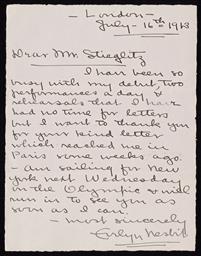 — London —
July - 16th - 1913
Dear Mr. Stieglitz
I have been so
busy with my debut, two
performances a day &
rehearsals that I have
had no time for letters
but I want to thank you
for your kind letter
which reached me in
Paris some weeks ago.
- am sailing for New
York next Wednesday
on the Olympic & will
run in to see you as
soon as I can.
— most sincerely
Evelyn Nesbit